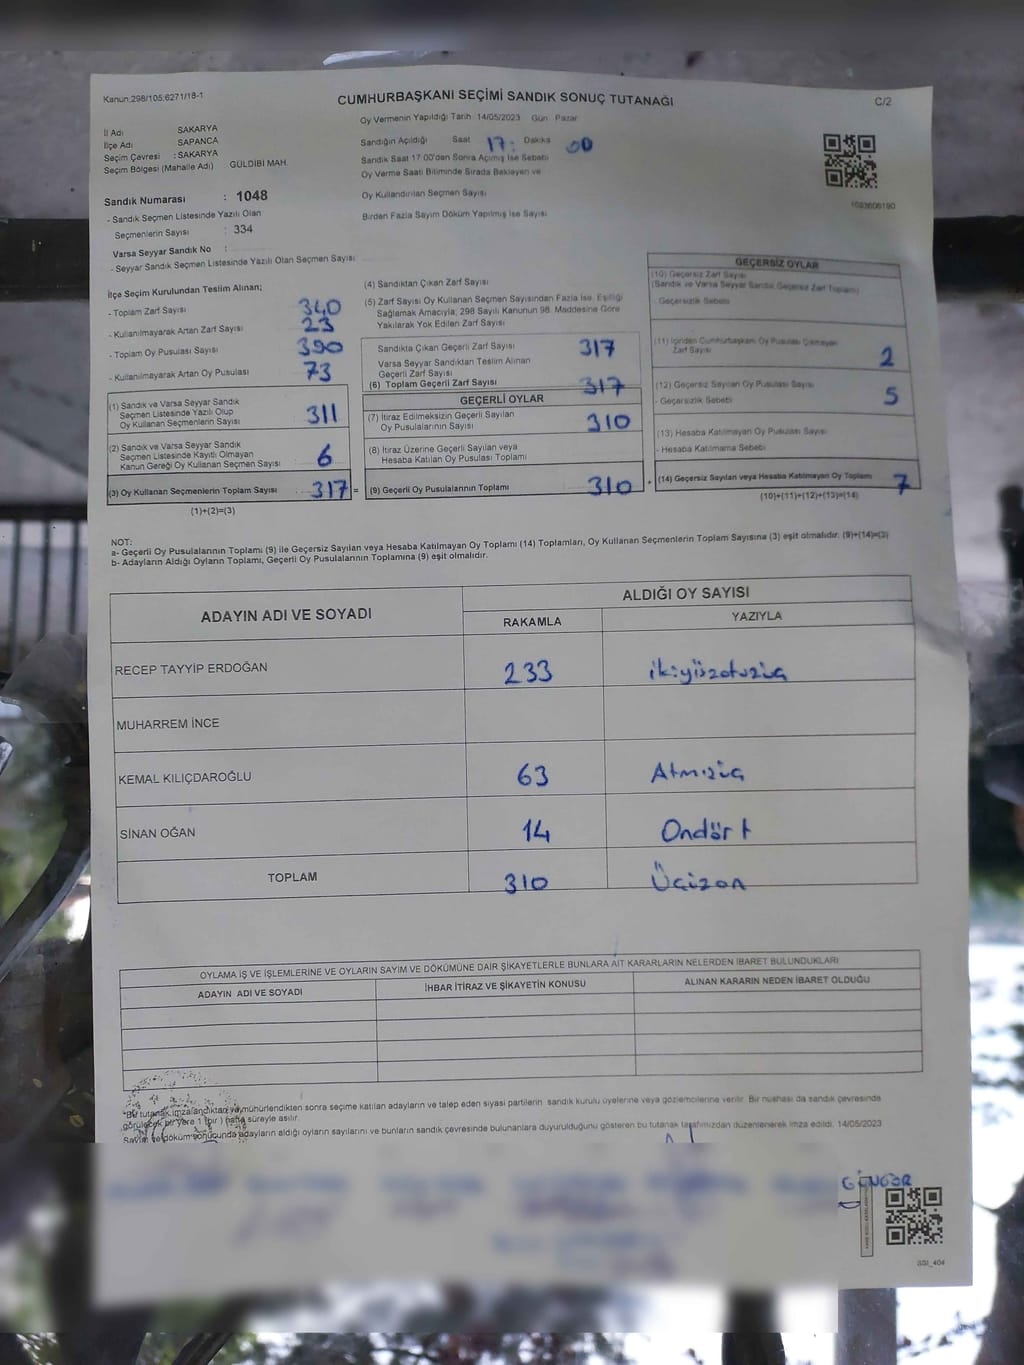 Kanun:298/105:6271/18-1
CUMHURBAŞKANI SEÇİMİ SANDIK SONUÇ TUTANAĞI
C/2
İl Adı SAKARYA
İlçe Adı SAPANCA
Seçim Çevresi : SAKARYA
Seçim Bölgesi (Mahalle Adı) GÜLDİBİ MAH.
Sandık Numarası : 1048
- Sandık Seçmen Listesinde Yazılı Olan
Seçmenlerin Sayısı : 334
Varsa Seyyar Sandık No :
- Seyyar Sandık Seçmen Listesinde Yazılı Olan Seçmen Sayısı
Oy Vermenin Yapıldığı Tarih 14/05/2023 Gün Pazar
Sandığın Açıldığı Saat 17: Dakika 00
Sandık Saat 17.00'den Sonra Açılmış İse Sebebi
Oy Verme Saati Bitiminde Sırada Bekleyen ve
Oy Kullandırılan Seçmen Sayısı
Birden Fazla Sayım Döküm Yapılmış İse Sayısı
1093606190
İlçe Seçim Kurulundan Teslim Alınan;
- Toplam Zarf Sayısı 340
- Kullanılmayarak Artan Zarf Sayısı 23
- Toplam Oy Pusulası Sayısı 390
- Kullanılmayarak Artan Oy Pusulası 73
(1) Sandık ve Varsa Seyyar Sandık
Seçmen Listesinde Yazılı Olup
Oy Kullanan Seçmenlerin Sayısı 311
(2) Sandık ve Varsa Seyyar Sandık
Seçmen Listesinde Kayıtlı Olmayan
Kanun Gereği Oy Kullanan Seçmen Sayısı 6
(3) Oy Kullanan Seçmenlerin Toplam Sayısı 317 =
(1)+(2)=(3)
(4) Sandıktan Çıkan Zarf Sayısı
(5) Zarf Sayısı Oy Kullanan Seçmen Sayısından Fazla İse, Eşitliği
Sağlamak Amacıyla; 298 Sayılı Kanunun 98. Maddesine Göre
Yakılarak Yok Edilen Zarf Sayısı
Sandıkta Çıkan Geçerli Zarf Sayısı 317
Varsa Seyyar Sandıktan Teslim Alınan
Geçerli Zarf Sayısı
(6) Toplam Geçerli Zarf Sayısı 317
GEÇERLİ OYLAR
(7) İtiraz Edilmeksizin Geçerli Sayılan
Oy Pusulalarının Sayısı 310
(8) İtiraz Üzerine Geçerli Sayılan veya
Hesaba Katılan Oy Pusulası Toplamı
(9) Geçerli Oy Pusulalarının Toplamı 310 +
GEÇERSİZ OYLAR
(10) Geçersiz Zarf Sayısı
(Sandık ve Varsa Seyyar Sandık Geçersiz Zarf Toplamı)
- Geçersizlik Sebebi
(11) İçinden Cumhurbaşkanı Oy Pusulası Çıkmayan
Zarf Sayısı 2
(12) Geçersiz Sayılan Oy Pusulası Sayısı 5
- Geçersizlik Sebebi
(13) Hesaba Katılmayan Oy Pusulası Sayısı
- Hesaba Katılmama Sebebi
(14) Geçersiz Sayılan veya Hesaba Katılmayan Oy Toplamı 7
(10)+(11)+(12)+(13)=(14)
NOT:
a- Geçerli Oy Pusulalarının Toplamı (9) ile Geçersiz Sayılan veya Hesaba Katılmayan Oy Toplamı (14) Toplamları, Oy Kullanan Seçmenlerin Toplam Sayısına (3) eşit olmalıdır. (9)+(14)=(3)
b- Adayların Aldığı Oyların Toplamı, Geçerli Oy Pusulalarının Toplamına (9) eşit olmalıdır.
ADAYIN ADI VE SOYADI
ALDIĞI OY SAYISI
RAKAMLA YAZIYLA
RECEP TAYYİP ERDOĞAN 233 ikiyüzotuzüç
MUHARREM İNCE
KEMAL KILIÇDAROĞLU 63 Atmışüç
SİNAN OĞAN 14 Ondört
TOPLAM 310 Üçüzon
OYLAMA İŞ VE İŞLEMLERİNE VE OYLARIN SAYIM VE DÖKÜMÜNE DAİR ŞİKAYETLERLE BUNLARA AİT KARARLARIN NELERDEN İBARET BULUNDUKLARI
ADAYIN ADI VE SOYADI İHBAR İTİRAZ VE ŞİKAYETİN KONUSU ALINAN KARARIN NEDEN İBARET OLDUĞU
*Bir tutanak imzalandıktan ve mühürlendikten sonra seçime katılan adayların ve talep eden siyasi partilerin sandık kurulu üyelerine veya gözlemcilerine verilir. Bir nüshası da sandık çevresinde
görülecek bir yere 1 (bir) hafta süreyle asılır.
Sayım ve döküm sonucunda adayların aldığı oyların sayılarını ve bunların sandık çevresinde bulunanlara duyurulduğunu gösteren bu tutanak tarafımızdan düzenlenerek imza edildi. 14/05/2023
GÜNGÖR
SSI_404